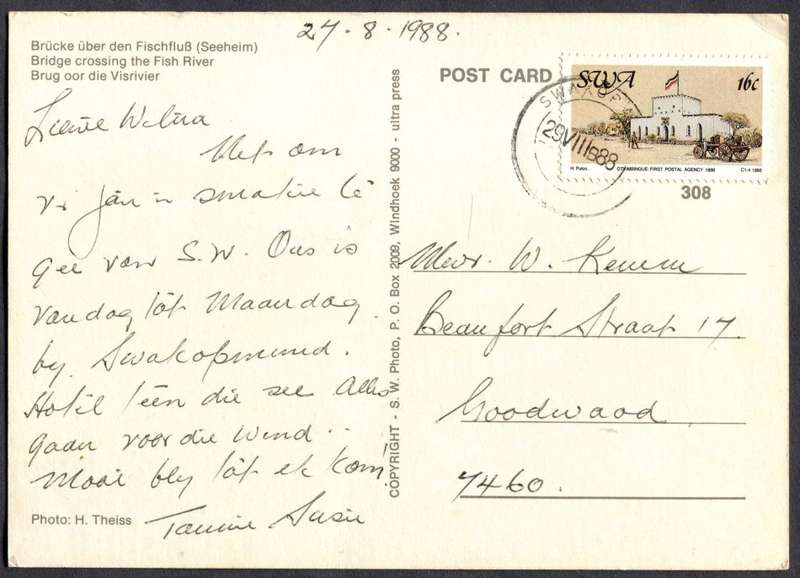 27.8.1988.
Brücke über den Fischfluß (Seeheim)
Bridge crossing the Fish River
Brug oor die Visrivier
POST CARD
SWA 16c
SWAKOP
29VIII88
H. Pulon. OTJIMBINGUE: FIRST POSTAL AGENCY 1888 1988
308
Liewe Wilna
Net om
vi jou 'n smakie te
gee van S.W. Ons is
vandag tot Maandag
by Swakopmund.
Hotel teen die see Alles
gaan voor die wind..
Mooi bly tot ek kom
Tannie Susie
Photo: H. Theiss
COPYRIGHT - S. W. Photo, P. O. Box 2009, Windhoek 9000 - ultra press
Mevr. W.
Beaufort Straat 17.
Goodwood
7460.